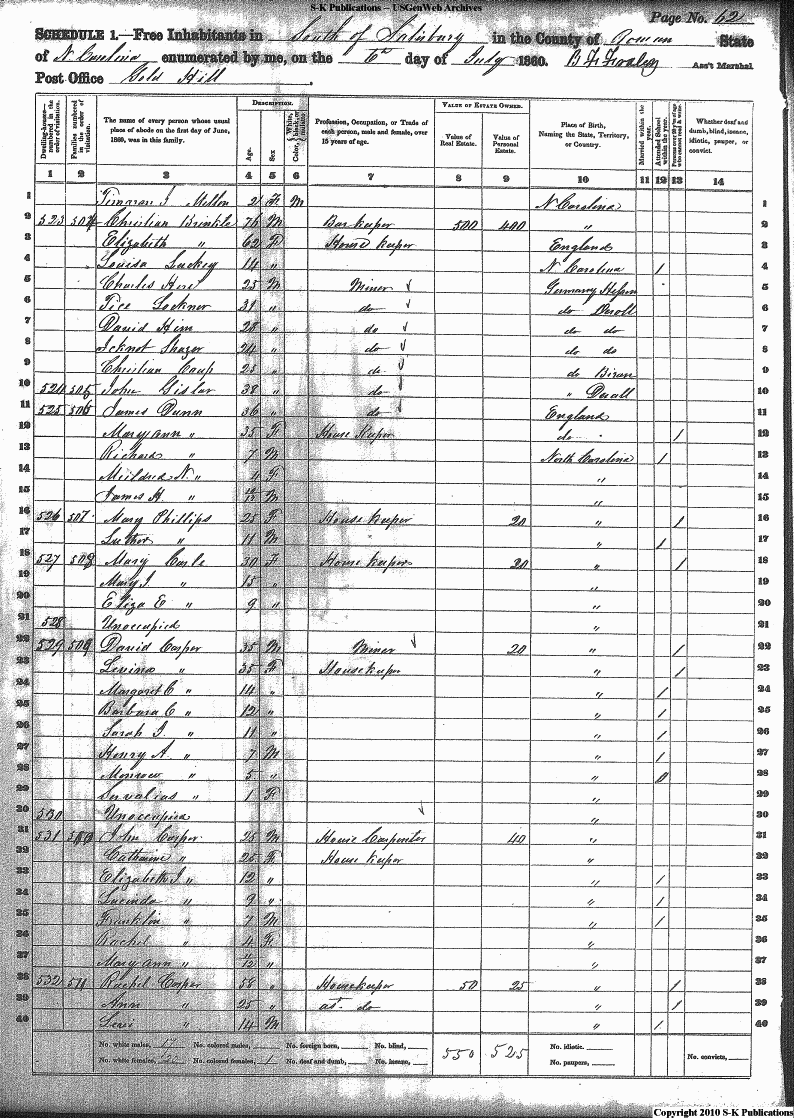 S-K Publications – USGenWeb Archives
Page No. 62
SCHEDULE 1.—Free Inhabitants in South of Salisbury in the County of Rowan State
of N Carolina enumerated by me, on the 6th day of July 1860. Ass't Marshal
Post Office Gold Hill
Dwelling-houses—numbered in the order of visitation.
Families numbered in the order of visitation.
The name of every person whose usual place of abode on the first day of June, 1860, was in this family.
DESCRIPTION.
Age.
Sex
Color, White, black, or mulatto
Profession, Occupation, or Trade of each person, male and female, over 15 years of age.
VALUE OF ESTATE OWNED.
Value of Real Estate.
Value of Personal Estate.
Place of Birth, Naming the State, Territory, or Country.
Married within the year.
Attended School within the year.
Whether deaf and dumb, blind, insane, idiotic, pauper, or convict.
1 2 3 4 5 6 7 8 9 10 11 12 13 14
1 J Mellon 21 F M N Carolina 1
2 523 504 Christian Brinkle 76 M Barkeeper 500 400 " 2
3 Elizabeth " 62 F House keeper England 3
4 Louisa Luckey 14 " N Carolina / 4
5 Charles 25 M Miner Germany 5
6 Tice 31 " do do 6
7 David 28 " do do do 7
8 24 " do do do 8
9 Christian 25 " do do 9
10 524 505 John Gislar 38 " do " 10
11 525 506 James Dunn 36 " do England 11
12 Mary Ann " 35 F House Keeper do 1 12
13 Richard " 7 M North Carolina / 13
14 Mildred N. " 4 F " 14
15 James H " M " 15
16 526 507 Mary Phillips 25 F House Keeper 20 " / 16
17 Luther " 11 M " / 17
18 527 508 Mary 30 F House Keeper 20 " / 18
19 Mary J. " 15 " " 19
20 Eliza E " 9 " " 20
21 528 Unoccupied " 21
22 529 509 David Casper 35 M Miner 20 " / 22
23 Levina " 35 F Housekeeper " / 23
24 Margaret C " 14 " " / 24
25 Barbara C " 12 " " / 25
26 Sarah J. " 11 " " / 26
27 Henry A. " 7 M " / 27
28 Monrow " 5 " " 28
29 " 1 F " 29
30 530 Unoccupied " 30
31 531 510 John Casper 25 M House Carpenter 40 " 31
32 Catharine " 25 F House keeper " 32
33 Elizabeth J " 12 " " / 33
34 Lucinda " 9 " " / 34
35 Franklin " 7 M " / 35
36 Rachel " 4 F " 36
37 Mary Ann " " 37
38 532 511 Rachel Casper 58 " Housekeeper 50 25 " / 38
39 Ann " 25 " at do " / 39
40 Levi " 14 M " / 40
No. white males, 17 No. colored males, No. foreign born, No. blind, 550 525 No. idiotic.
No. white females, No. colored females, 1 No. deaf and dumb, No. insane, No. paupers, No. convicts,
Copyright 2010 S-K Publications